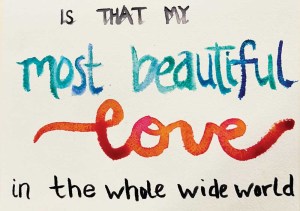 IS THAT MY
most beautiful
love
in the whole wide world